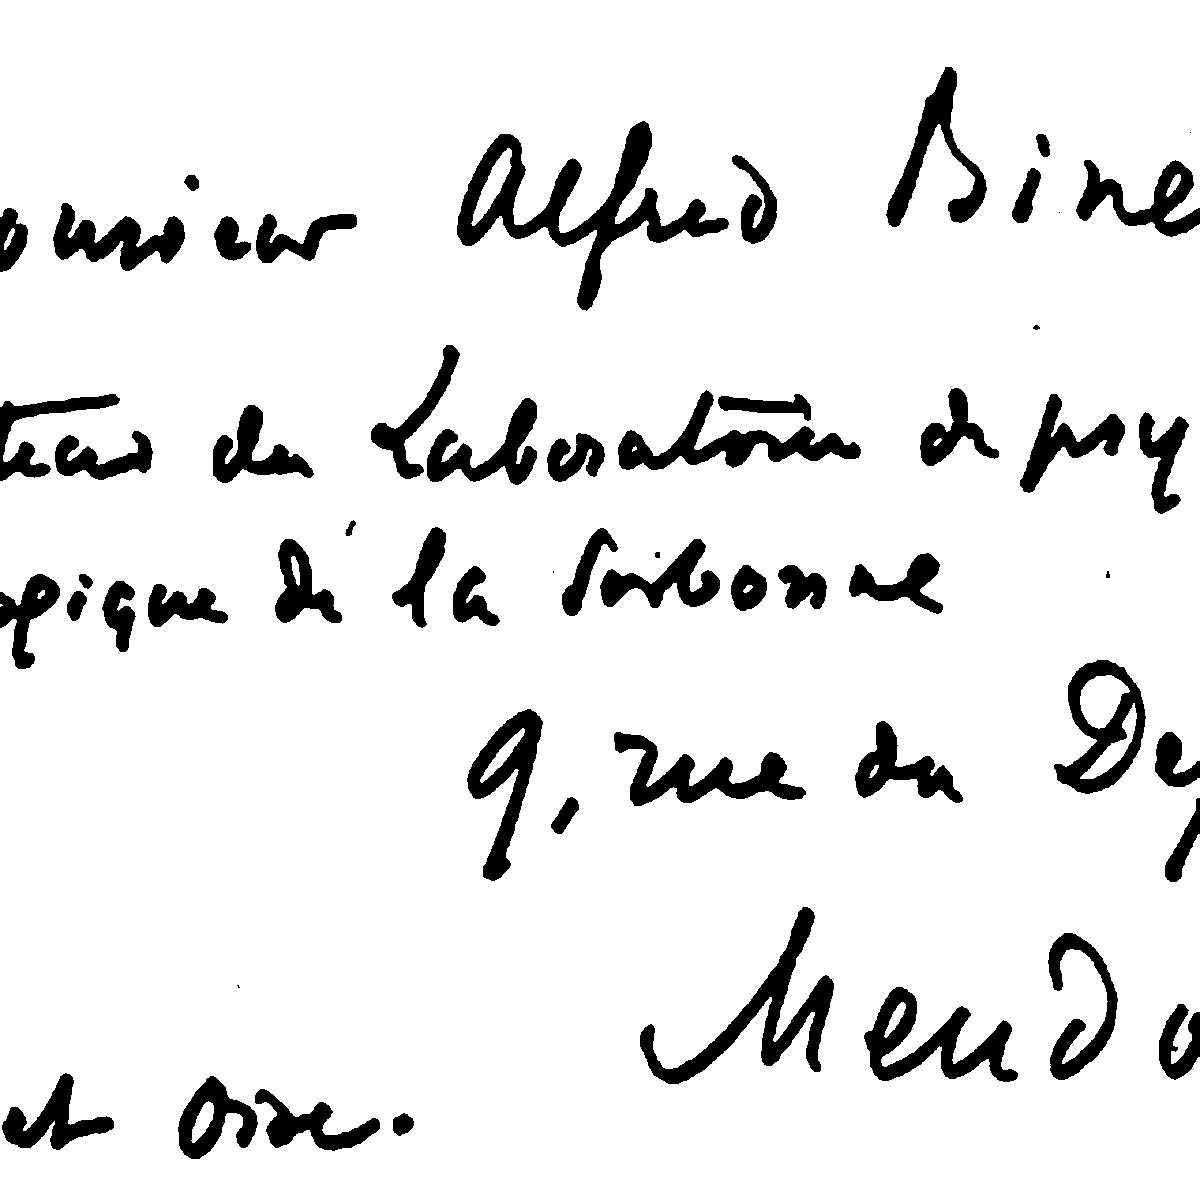 onsieur Alfred Bine
teur du Laboratoire de psy
ogique de la Sorbonne
9, rue du Dep
Meudo
et Oise.